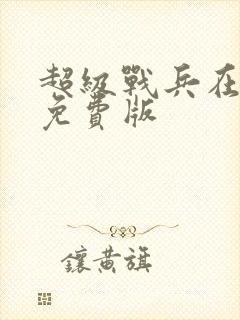 超級戰兵在
免費版
鑲黃旗